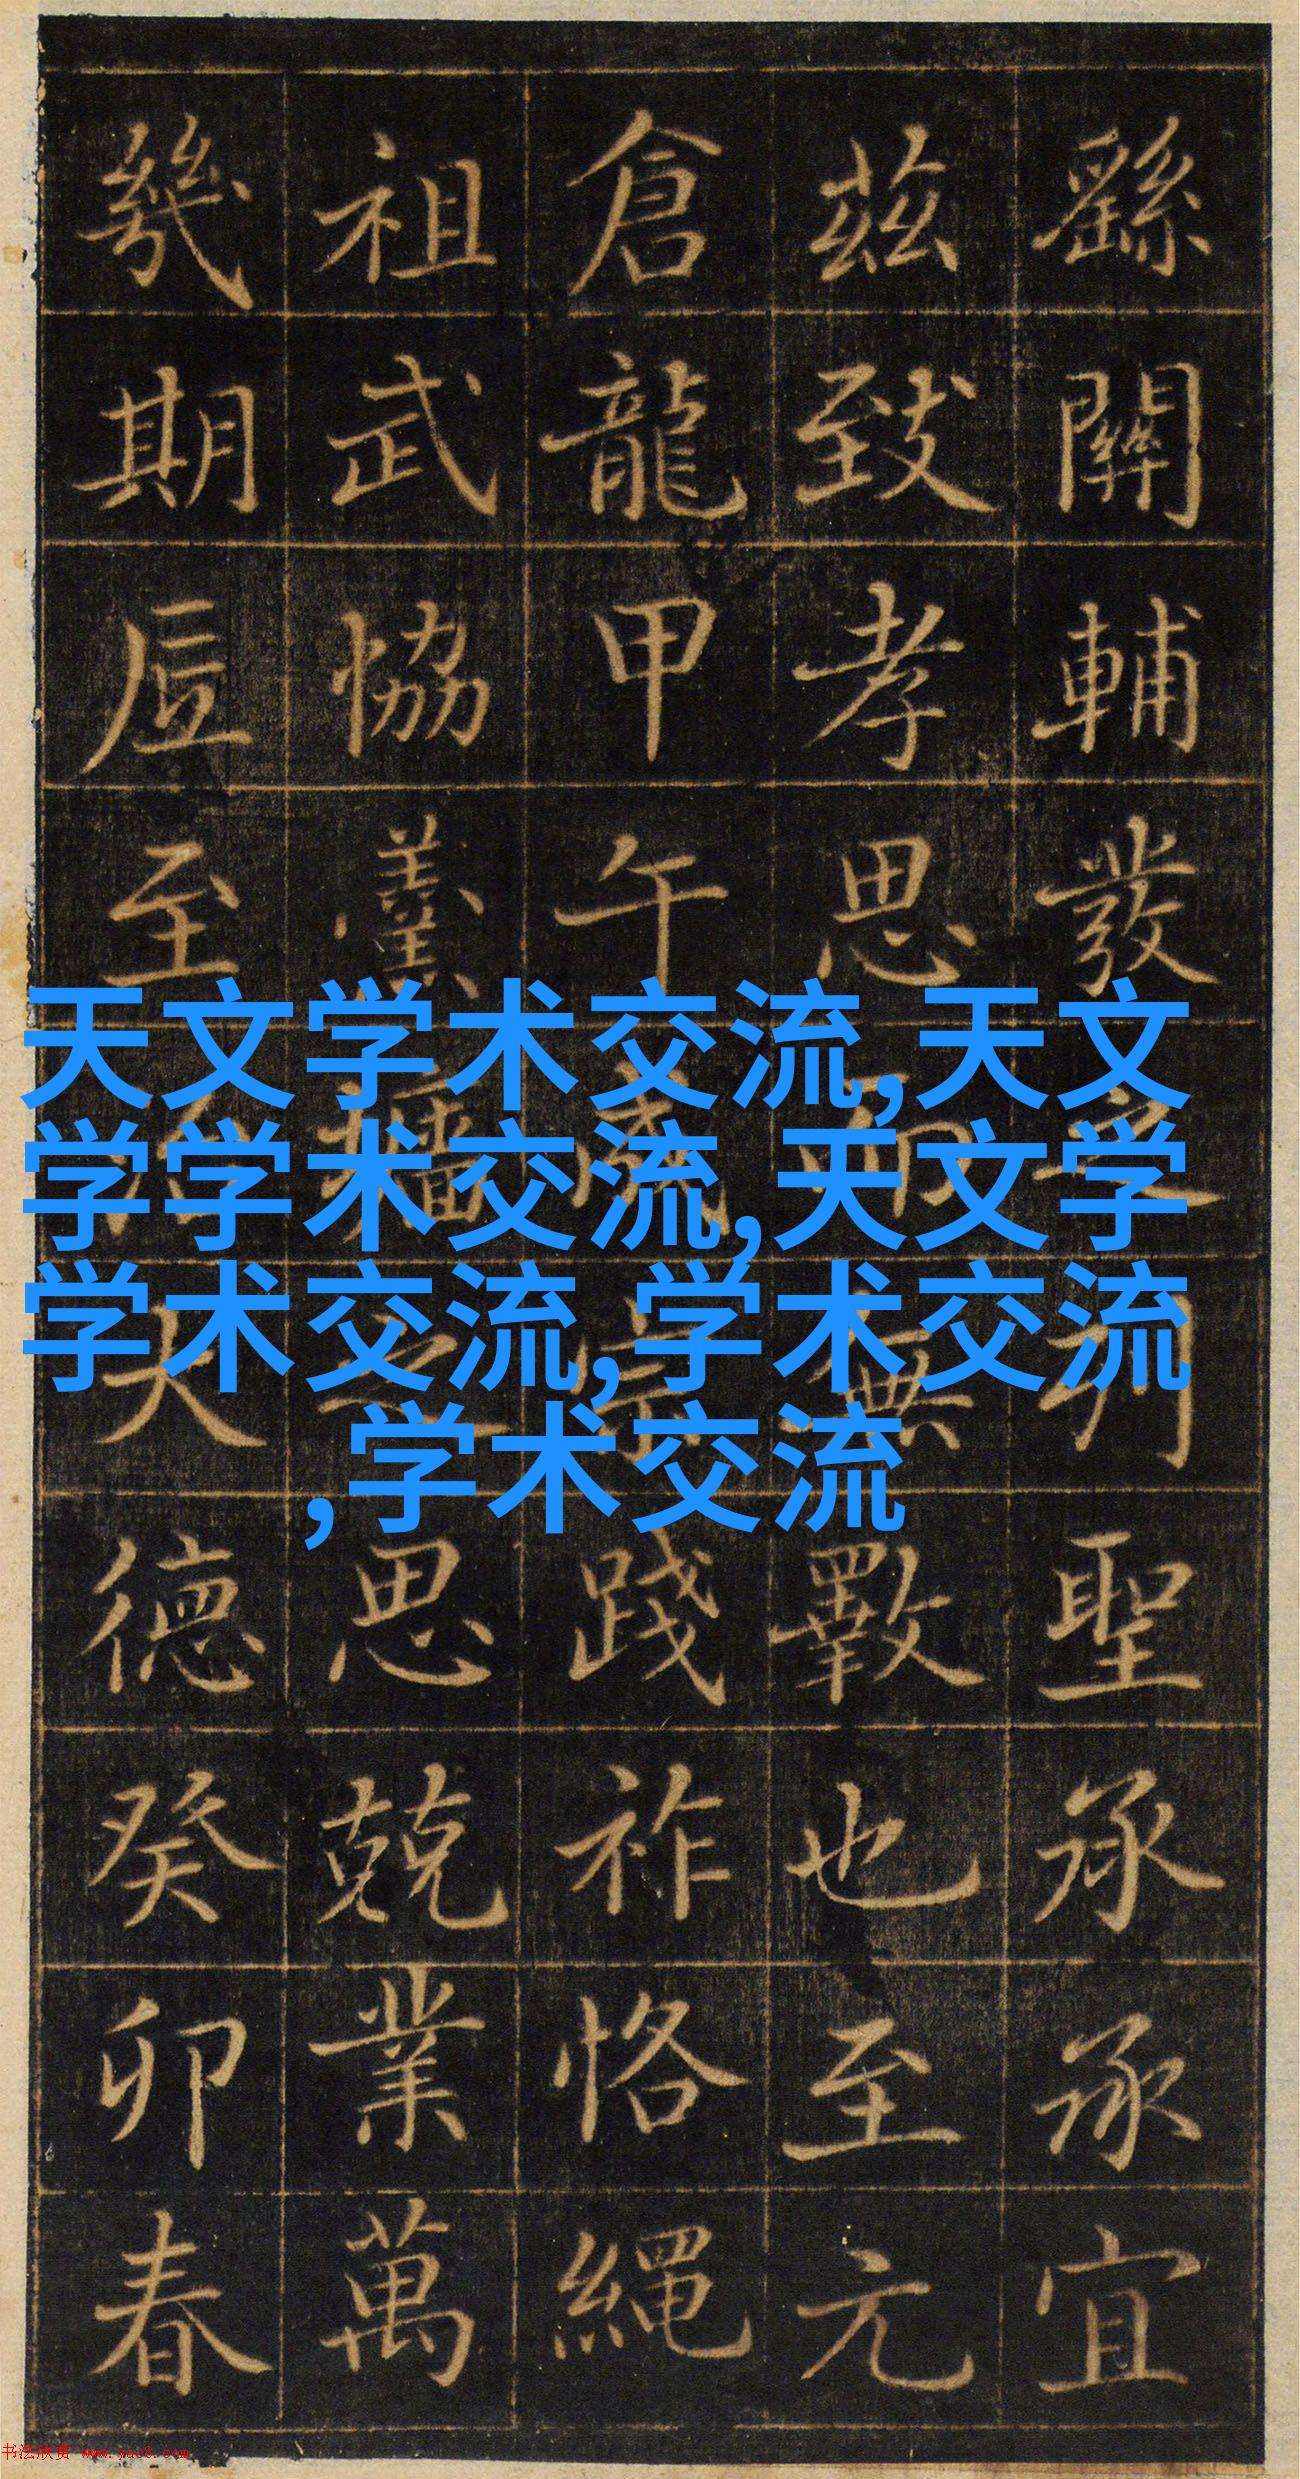 繇關輔發之列聖承承宜
茲致孝思而無斁也至元
倉龍甲午成宗踐祚恪繩
祖武協羹牆之思兢業萬
幾期底至治大德癸卯春
天文学术交流,天文
学学术交流,天文学
学术交流,学术交流
,学术交流
书法欣赏 www.yac8.com